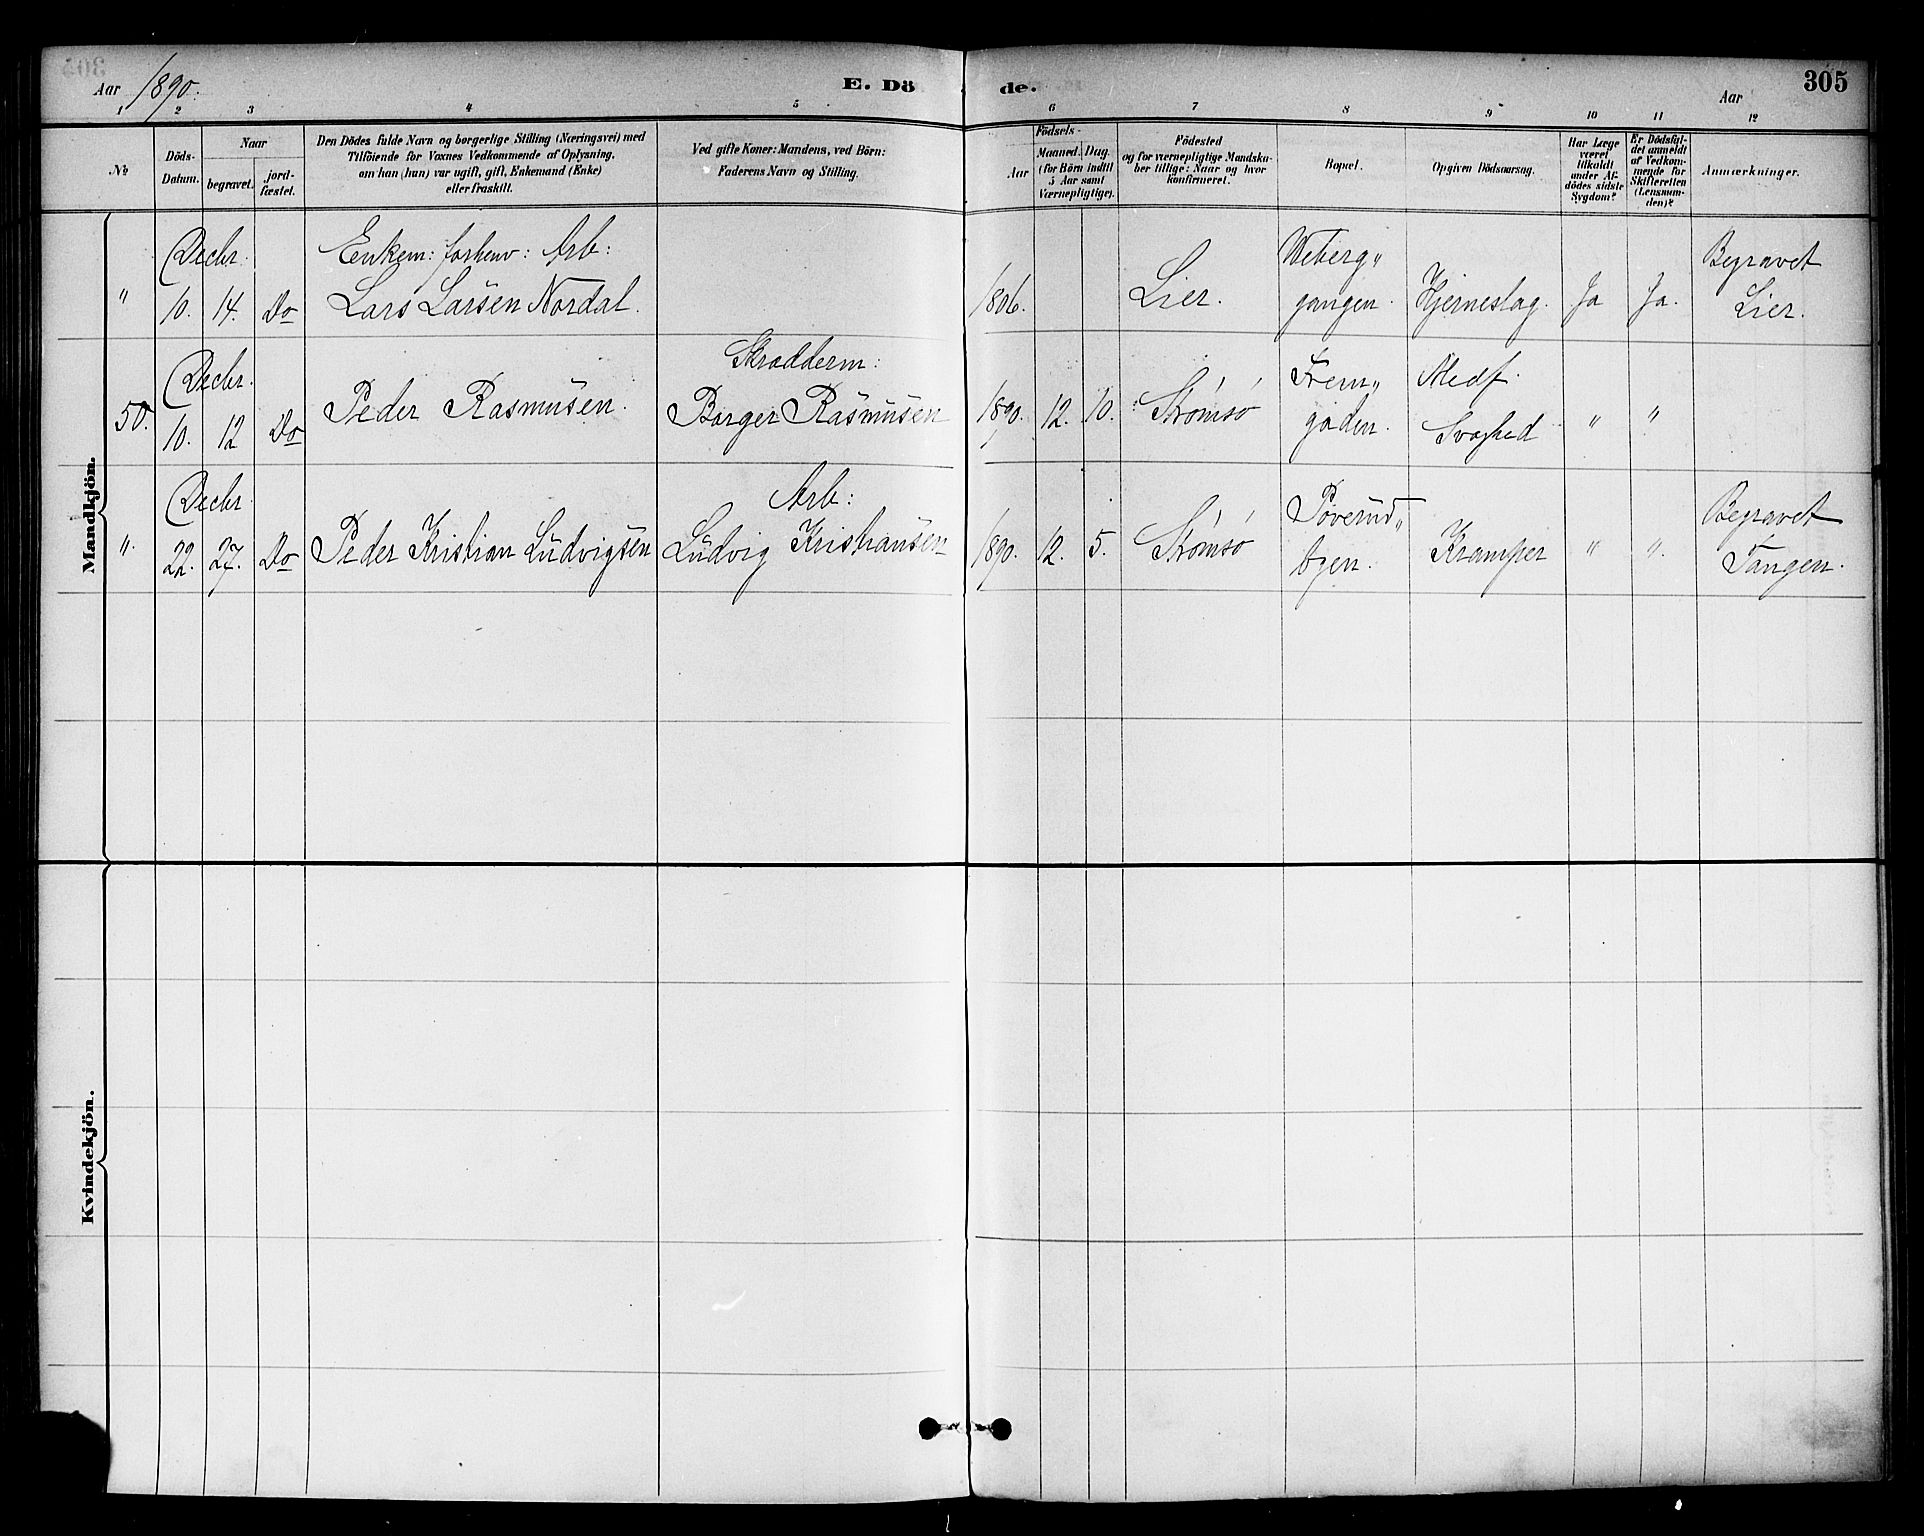 Aar 1890.
E. Dö
de.
Aar
305
1 2 3 4 5 6 7 8 9 10 11 12
No
Döds-
Datum.
Naar
begravet.
jord-
fæstet.
Den Dödes fulde Navn og borgerlige Stilling (Næringsvei) med
Tilföiende for Voxnes Vedkommende af Oplysning,
om han (hun) var ugift, gift, Enkemand (Enke)
eller fraskilt.
Ved gifte Koner: Mandens, ved Börn:
Faderens Navn og Stilling.
Födsels-
Aar
Maaned. Dag.
(for Börn indtil
5 Aar samt
Værnepligtige).
Födested
og for værnepligtige Mandska-
ber tillige: Naar og hvor
konfirmeret.
Bopæl.
Opgiven Dödsaarsag.
Har Læge
været
tilkaldt
under Af-
dödes sidste
Sygdom?
Er Dödsfal-
det anmeldt
af Vedkom-
mende for
Skifteretten
(Lensman-
den)?
Anmærkninger.
Mandkjön.
" Decbr.
10. 14. Do
Enkem: forhenv: Arb:
Lars Larsen Nordal.
1806.
Lier.
Weberg"
gangen.
Hjerneslag.
Ja
Ja.
Begravet
Lier.
50. Decbr.
10. 12 Do
Peder Rasmusen.
Skrædderm:
Borger Rasmusen
1890. 12. 10.
Strømsø
Frem"
gaden.
Medf.
Svaghed
"
"
". Decbr.
22. 27. Do
Peder Kristian Ludvigsen
Arb:
Ludvig Kristiansen
1890. 12. 5.
Strømsø
Toverud"
bgen.
Kramper
"
".
Begravet
Tangen.
Kvindekjön.